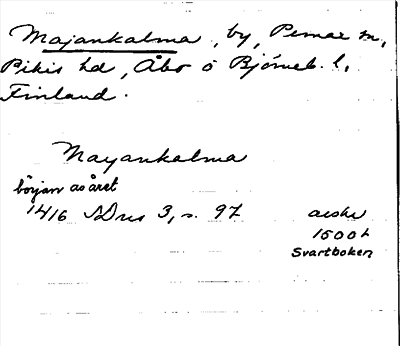 Majankalma, by, Pemar sn,
Pikis hd, Åbo o Björneb. l,
Finland.
Mayankalma
början av året
1416 ÄDns 3, s. 97 avskr
1500 t
Svartboken